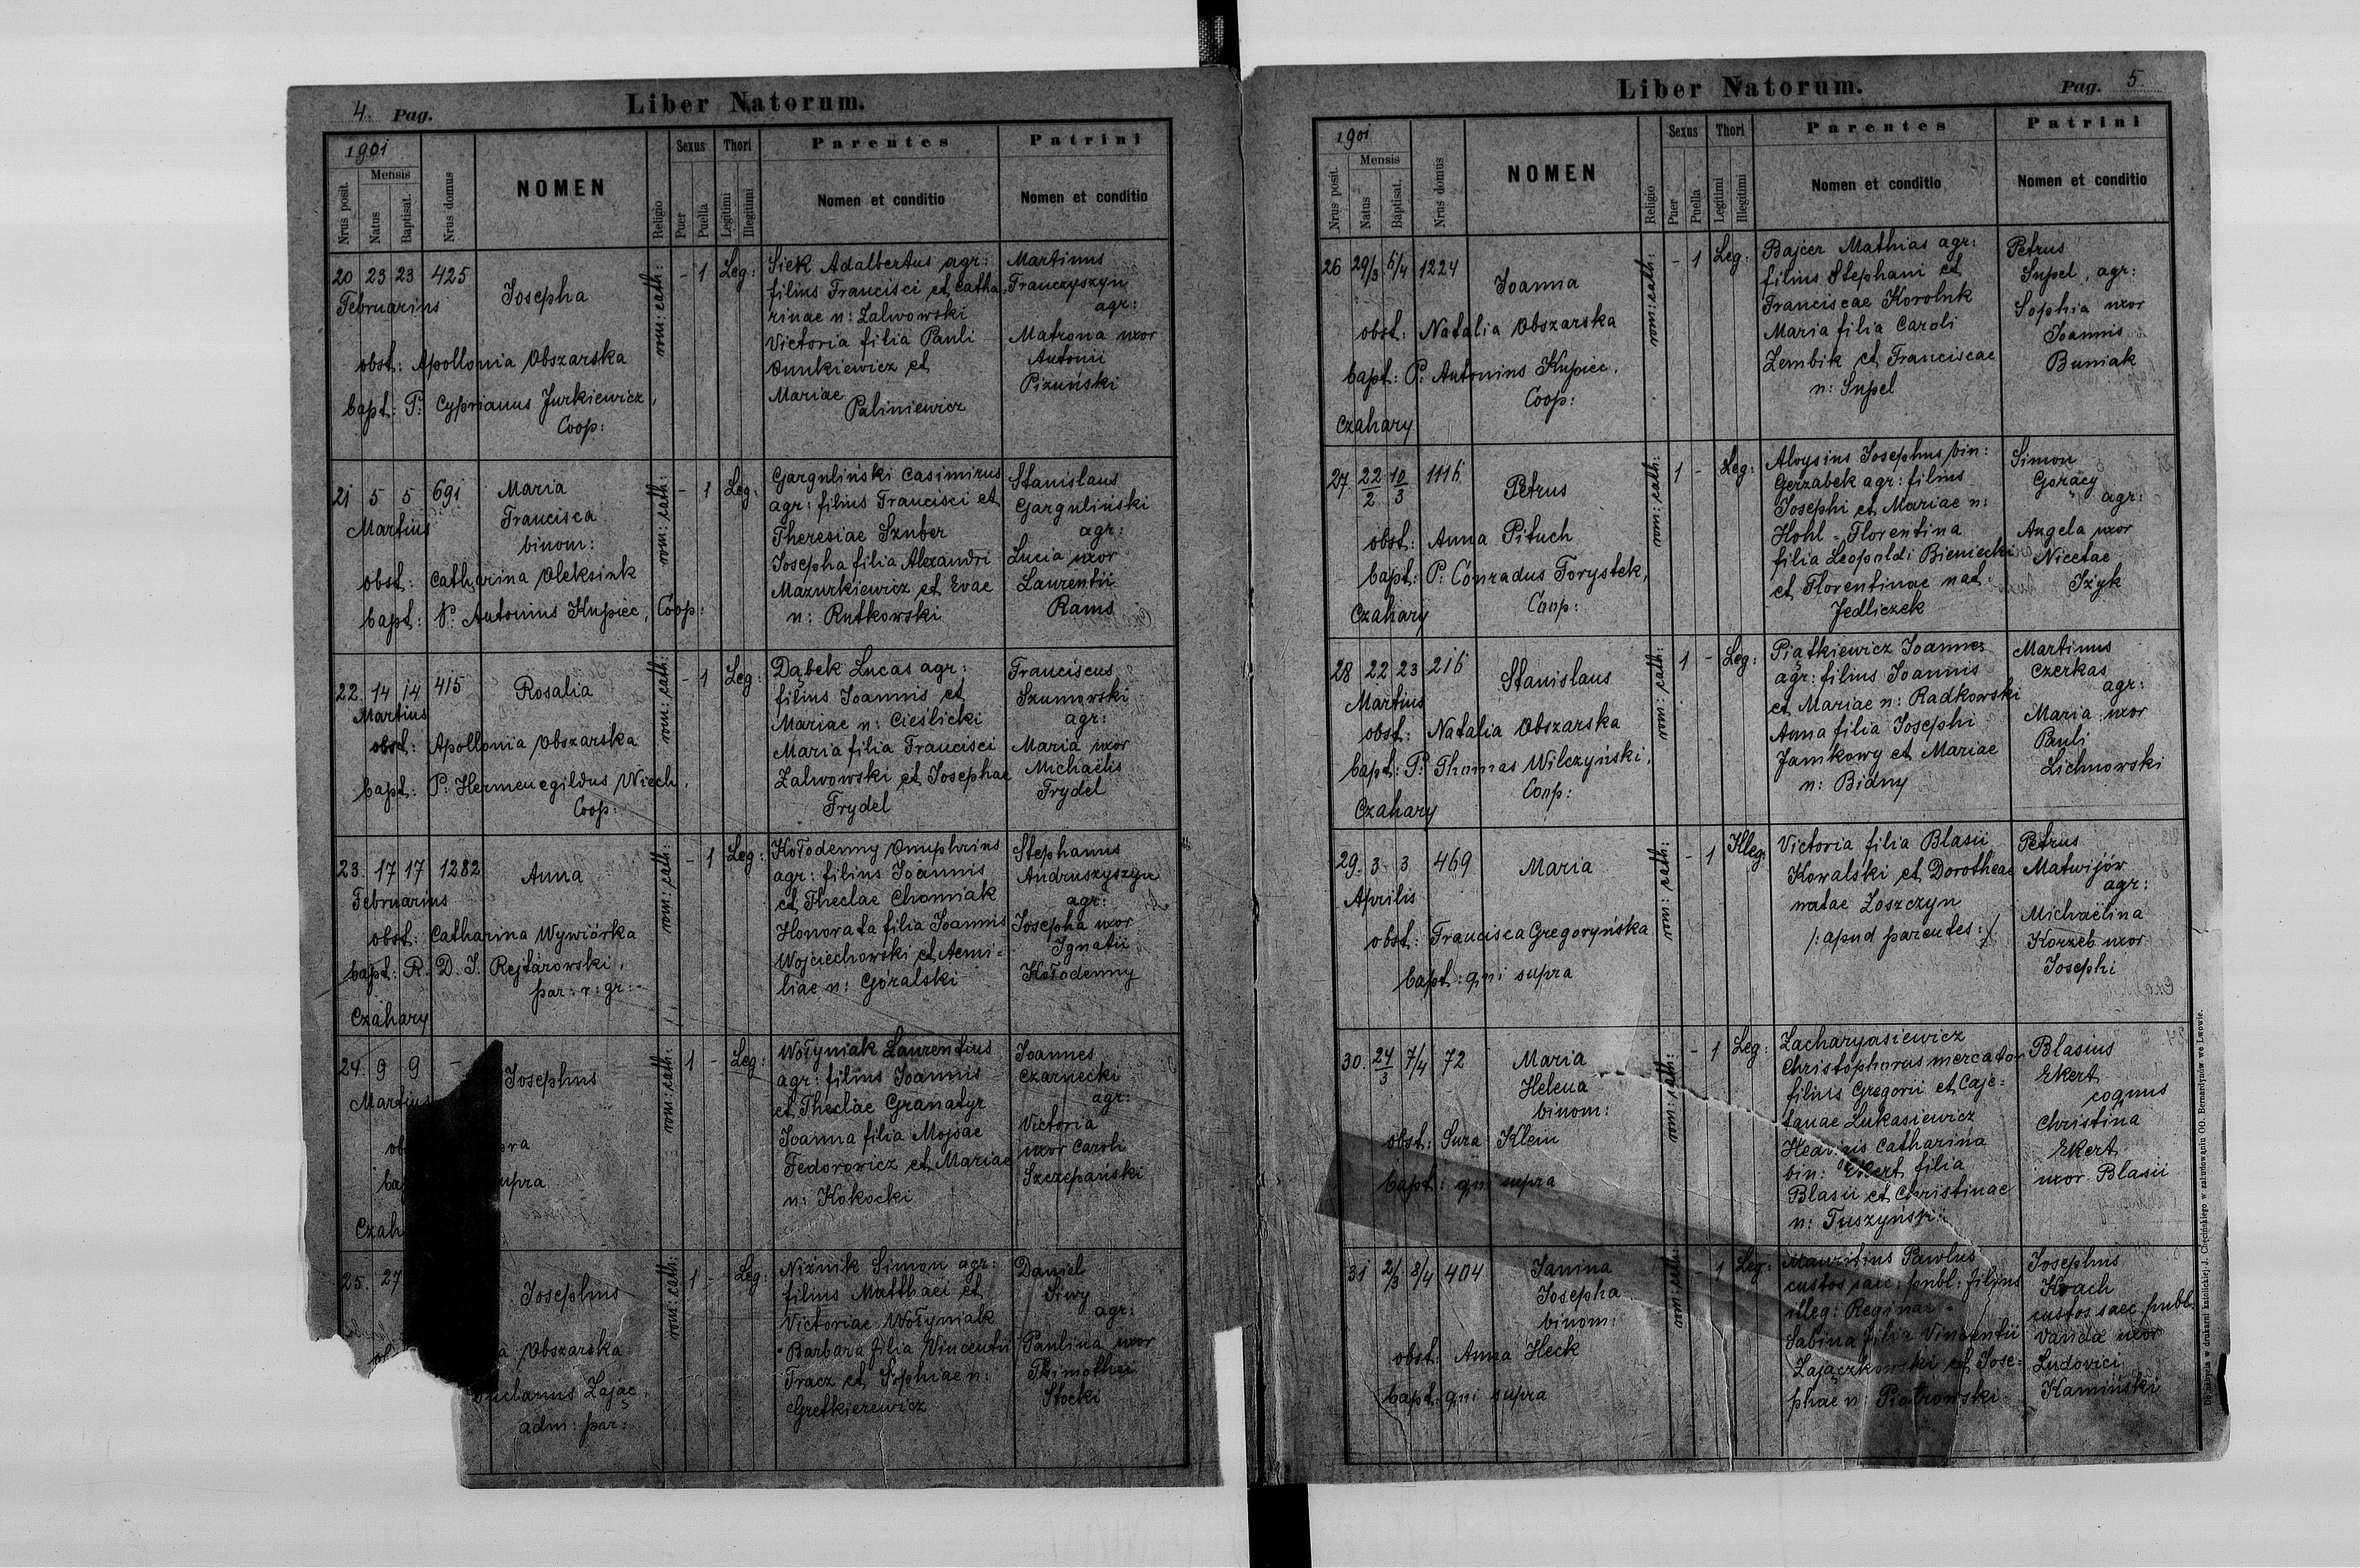 4. Pag.
Liber Natorum.
1901
Nrus posit.
Mensis
Natus
Baptisat.
Nrus domus
NOMEN
Religio
Sexus
Puer
Puella
Thori
Legitimi
Illegitimi
Parentes
Nomen et conditio
Patrini
Nomen et conditio
20 23 23 425
Februarius
Josepha
obst: Apollonia Obszarska
bapt: P. Cyprianus Jurkiewicz,
Coop:
rom: cath:
- 1 Leg:
Siek Adalbertus agr:
filius Francisci et Catha
rinae n: Zalwowski
Victoria filia Pauli
Onukiewicz et
Mariae
Paliniewicz
Martinus
Franczyszyn
agr:
Matrona uxor
Antonii
Pizuński
21 5 5 691
Martius
Maria
Francisca
binom:
obst: Catharina Oleksiuk
bapt: P. Antonius Kupiec, Coop:
rom: cath:
- 1 Leg:
Garguliński Casimirus
agr: filius Francisci et
Theresiae Szuber
Josepha filia Alexandri
Mazurkiewicz et Evae
n: Rutkowski
Stanislaus
Garguliński
agr:
Lucia uxor
Laurentii
Rams
22. 14 14 415
Martius
Rosalia
obst: Apollonia Obszarska
bapt: P. Hermenegildus Niech,
Coop:
rom: cath:
- 1 Leg:
Dąbek Lucas agr:
filius Joannis et
Mariae n: Cieślicki
Maria filia Francisci
Zalwowski et Josephae
Frydel
Franciscus
Szumowski
agr:
Maria uxor
Michaëlis
Frydel
23. 17 17 1282
Februarius
Anna
obst: Catharina Wywiórka
bapt: R. D. J. Rejtarowski,
par: r: gr:
Czahary
rom: cath:
- 1 Leg:
Kołodenny Onuphrius
agr: filius Joannis
et Theclae Chomiak
Honorata filia Joannis
Wojciechowski et Aemi=
liae n: Góralski
Stephanus
Andruszyszyn
agr:
Josepha uxor
Ignatii
Kołodenny
24. 9 9 -
Martius
Josephus
supra
Czah
rom: cath:
1 - Leg:
Wołyniak Laurentius
agr: filius Joannis
et Theclae Granatyr
Joanna filia Mojsae
Fedorowicz et Mariae
n: Kokocki
Joannes
Czarnecki
agr:
Victoria
uxor Caroli
Szczepański
25. 27
Josephus
a Obszarska
Zając,
adm: par:
rom: cath:
1 - Leg:
Niżnik Simon agr:
filius Matthaei et
Victoriae Wołyniak
Barbara filia Vincentii
Tracz et Sophiae n:
Gretkierewicz
Daniel
Siwy
agr:
Paulina uxor
Thimothei
Stocki
Liber Natorum.
Pag. 5.
1901
Nrus posit.
Mensis
Natus
Baptisat.
Nrus domus
NOMEN
Religio
Sexus
Puer
Puella
Thori
Legitimi
Illegitimi
Parentes
Nomen et conditio
Patrini
Nomen et conditio
26 29/3 5/4 1224
Joanna
obst: Natalia Obszarska
bapt: P. Antonius Kupiec,
Coop:
Czahary
rom: cath:
- 1 Leg:
Bajcer Mathias agr:
filius Stephani et
Franciscae Koroluk
Maria filia Caroli
Zembik et Franciscae
n: Supel
Petrus
Supel, agr:
Sophia uxor
Joannis
Buniak
27. 22/2 10/3 1116
Petrus
obst: Anna Pituch
bapt: P. Conradus Forystek,
Coop:
Czahary
rom: cath:
1 - Leg:
Aloysius Josephus bin:
Gerzabek agr: filius
Josephi et Mariae n:
Hohl - Florentina
filia Leopoldi Bieniecki
et Florentinae nat:
Jedliczek
Simon
Gorący
agr:
Angela uxor
Nicetae
Iżyk
28 22 23 216
Martius
Stanislaus
obst: Natalia Obszarska
bapt: P. Thomas Wilczyński,
Coop:
Czahary
rom: cath:
1 - Leg:
Piątkiewicz Joannes
agr: filius Joannis
et Mariae n: Radkowski
Anna filia Josephi
Jamkowy et Mariae
n: Bidny
Martinus
Czerkas
agr:
Maria uxor
Pauli
Lichnowski
29. 3 3 469
Aprilis
Maria
obst: Francisca Gregoryńska
bapt: qui supra
rom: cath:
- 1 Illeg:
Victoria filia Blasii
Kowalski et Dorotheae
natae Loszczyn
/: apud parentes :/
Petrus
Matwijów
agr:
Michaëlina
Korzeb uxor
Josephi
30. 24/3 7/4 72
Maria
Helena
binom:
obst: Sura Klein
bapt: qui supra
rom: cath:
- 1 Leg:
Zacharyasiewicz
Christophorus mercator
filius Gregorii et Caje=
tanae Łukasiewicz
Hedvigis Catharina
bin: Ekert filia
Blasii et Christinae
n: Tuszyński
Blasius
Ekert
coquus
Christina
Ekert
uxor Blasii
31 2/3 8/4 404
Janina
Josepha
binom:
obst: Anna Heck
bapt: qui supra
rom: cath:
- 1 Leg:
Mauritius Pawlus
custos saec: publ: filius
illeg: Reginae -
Sabina filia Vincentii
Zajączkowski et Jose=
phae n: Piotrowski
Josephus
Krach
custos saec. publ.
Vanda uxor
Ludovici
Kamiński
Do nabycia w drukarni katolickiej J. Chęcińskiego w zabudowaniu OO. Bernardynów we Lwowie.